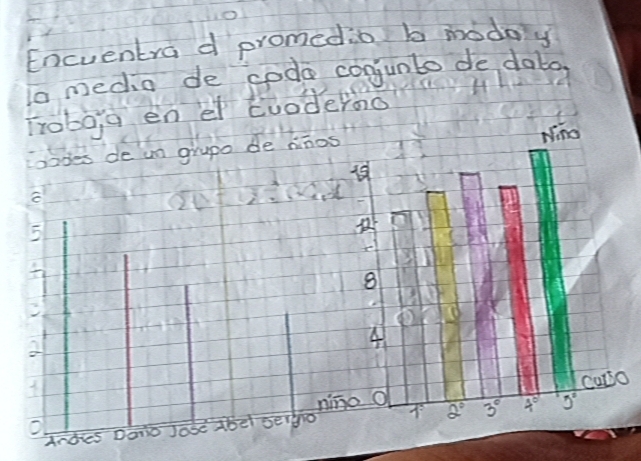 Encuentra el promedio la moda y
la media de coda conjunto de dato,
Trobaja en el cuoderno
de un grupo de niños
Niño
6
5
4
3
2
1
0
Andres Dario Jose Abel Sergio niño
12
8
4
0
1° 2° 3° 4° 5° curso